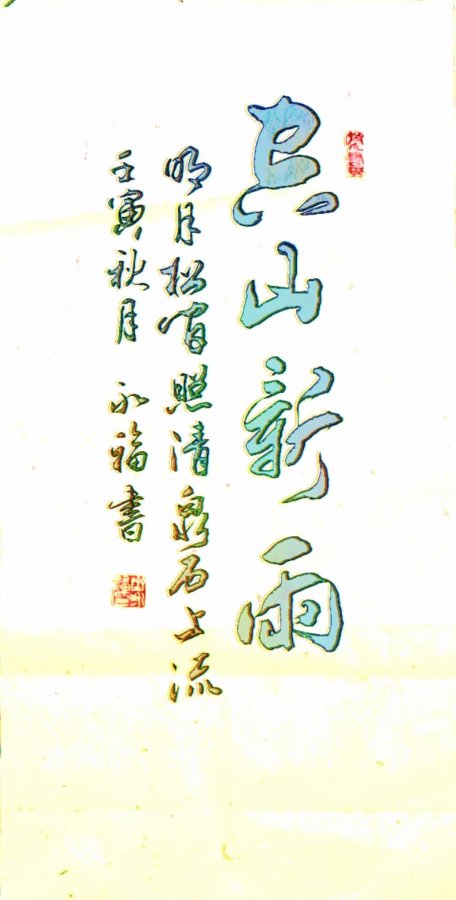 空山新雨
明月松間照清泉石上流
壬寅秋月 永福書